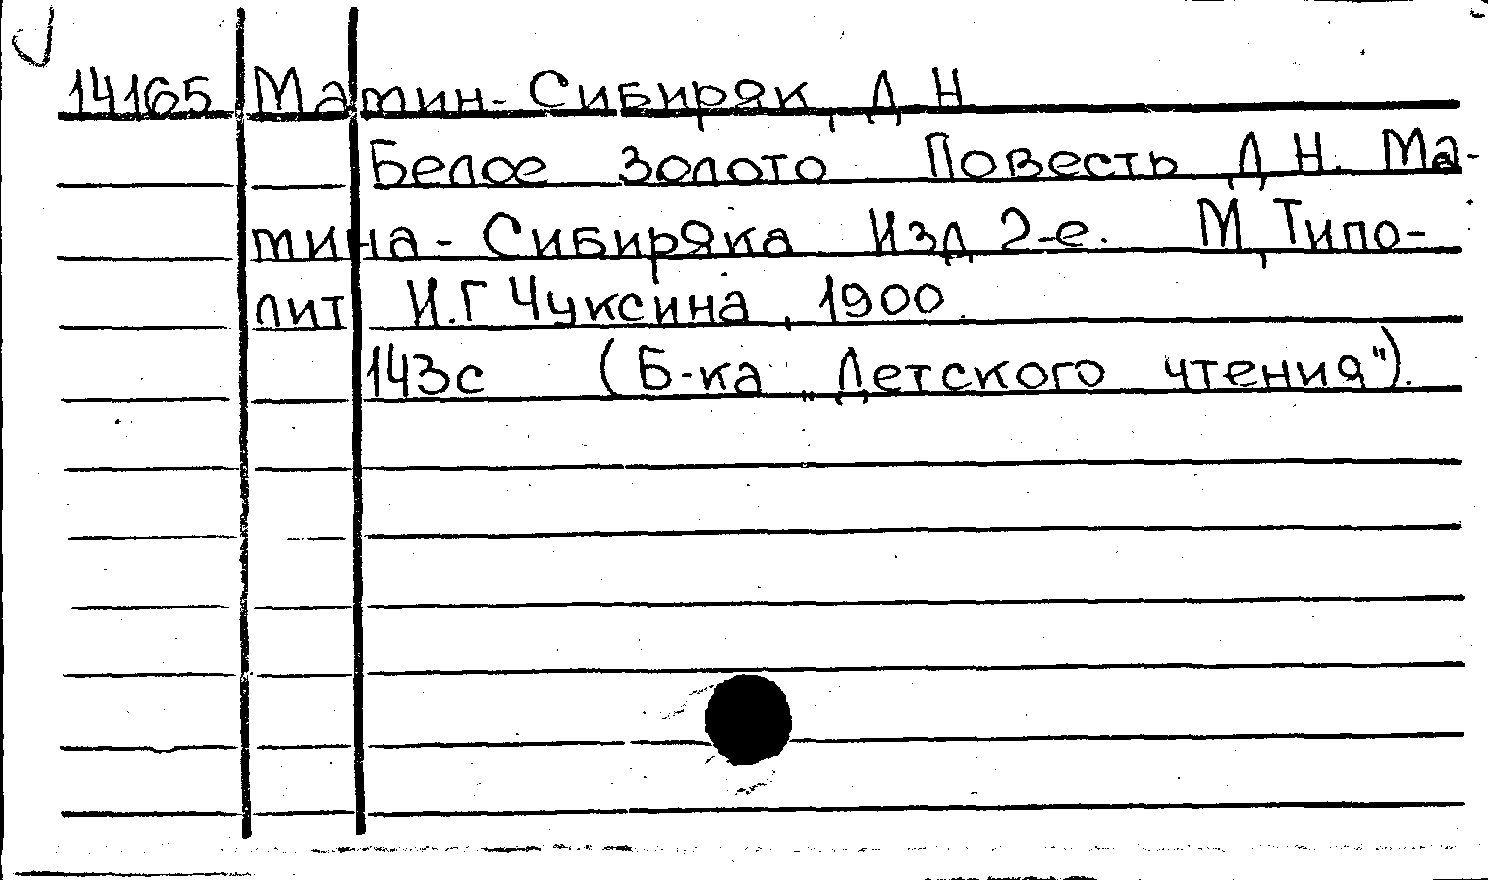 14165 Мамин-Сибиряк, Д Н
Белое золото Повесть Д Н. Ма-
мина-Сибиряка Изд 2-е. М, Типо-
лит И.Г Чуксина, 1900.
143с (Б-ка „Детского чтения").